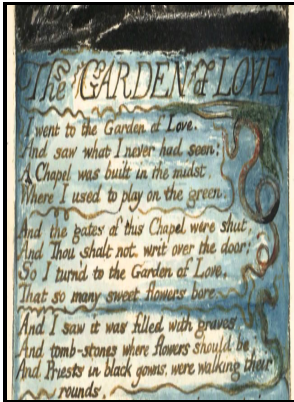 The GARDEN of LOVE
I went to the Garden of Love.
And saw what I never had seen:
A Chapel was built in the midst,
Where I used to play on the green.
And the gates of this Chapel were shut,
And Thou shalt not. writ over the door;
So I turn'd to the Garden of Love,
That so many sweet flowers bore.
And I saw it was filled with graves,
And tomb-stones where flowers should be:
And Priests in black gowns, were walking their
rounds,